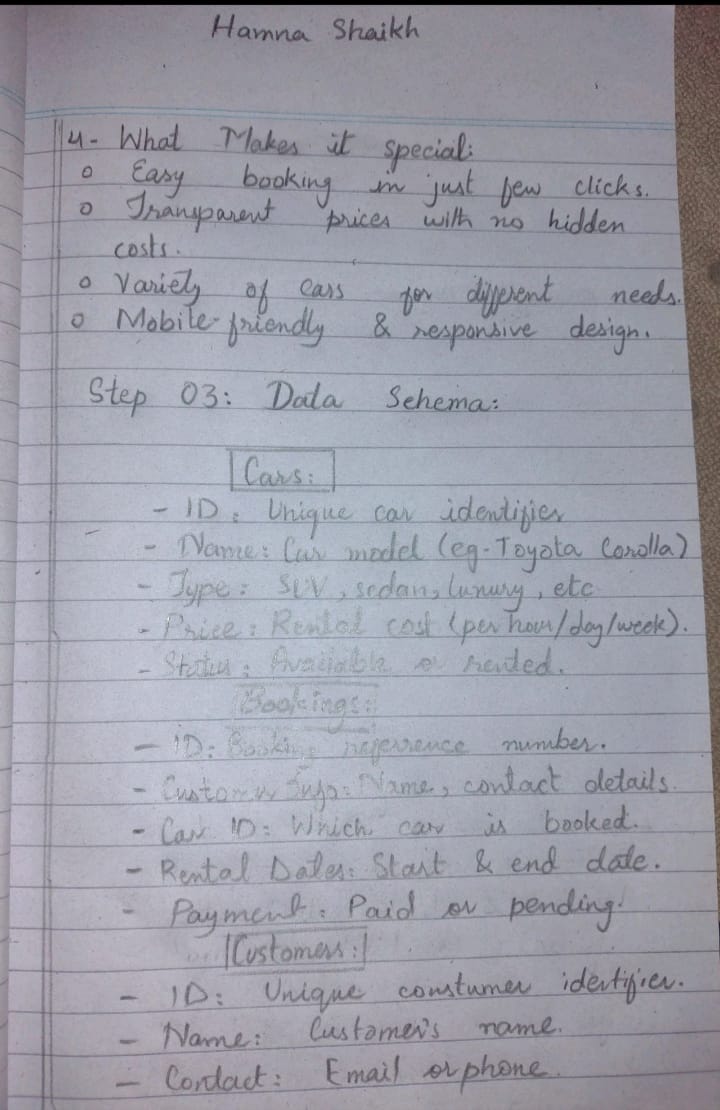 Hamna Shaikh
4- What Makes it special:
o Easy booking in just few clicks.
o Transparent prices with no hidden
costs.
o Variety of cars for different needs.
o Mobile-friendly & responsive design.
Step 03: Data Sehema:
Cars:
- ID: Unique car identifier
- Name: Car model (eg-Toyota Corolla)
- Type: SUV, sedan, luxury, etc
- Price: Rental cost (per hour/day/week).
- Status: Available or rented.
Bookings:
- ID: Booking referrence number.
- Customer Info: Name, contact details.
- Car ID: Which car is booked.
- Rental Dates: Start & end date.
- Payment: Paid or pending.
Customers:
- ID: Unique constumer identifier.
- Name: Customer's name.
- Contact: Email or phone.